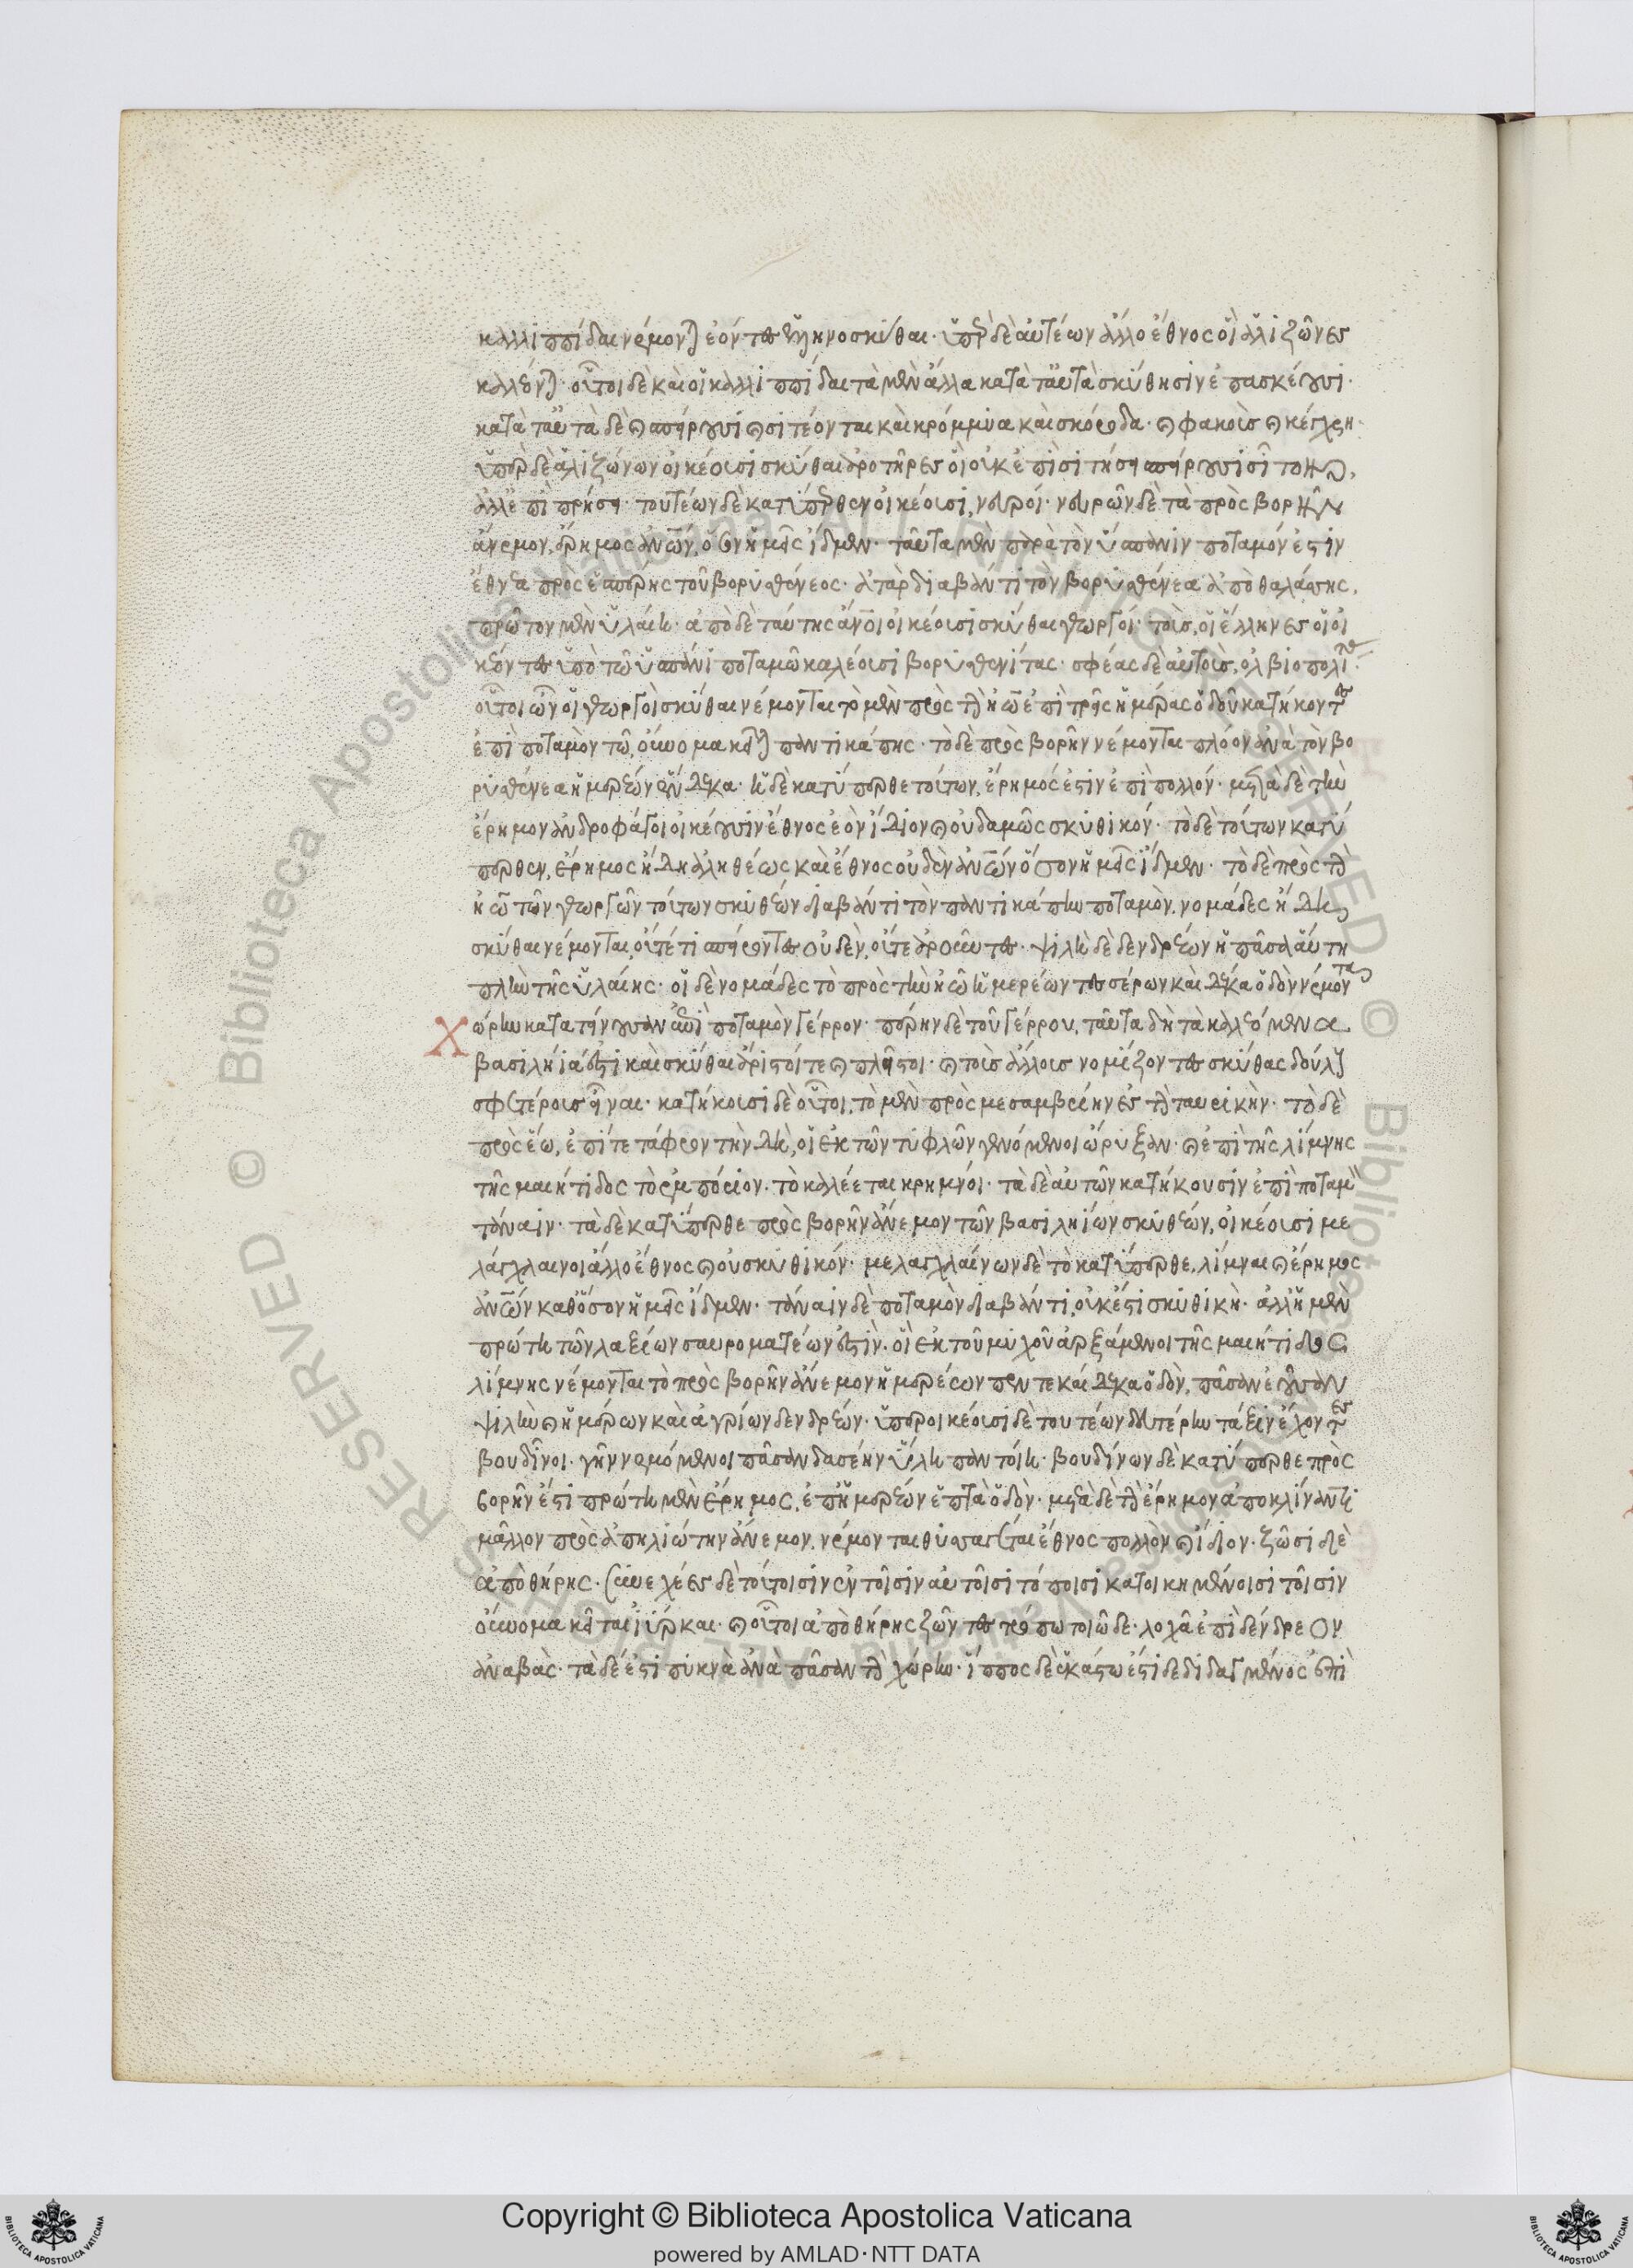 καλλιππίδαι νέμονται ἐόντες ἕλληνοσκύθαι· ὑπὲρ δὲ αὐτέων ἄλλο ἔθνος οἳ ἁλιζῶνες
καλέονται· οὗτοι δὲ καὶ οἱ καλλιππίδαι τὰ μὲν ἄλλα κατὰ ταὐτὰ σκύθῃσιν ἐπασκέουσι·
κατὰ ταὐτὰ δὲ καὶ σπείρουσι καὶ σιτέονται καὶ κρόμμυα καὶ σκόροδα· καὶ φακοὺς καὶ κέγχρη·
ὑπὲρ δὲ ἁλιζώνων οἰκέουσι σκύθαι ἀροτῆρες οἳ οὐκ ἐπὶ σιτήσει σπείρουσι σῖτον,
ἀλλ' ἐπὶ πρήσει· τουτέων δὲ κατύπερθεν οἰκέουσι, νευροί· νευρῶν δὲ τὰ πρὸς βορῆν
ἄνεμον, ἔρημος ἀνθρώπων, ὅσον ἡμεῖς ἴδμεν· ταῦτα μὲν παρὰ τὸν ὕπανιν ποταμόν ἐστιν
ἔθνεα πρὸς ἑσπέρης τοῦ βορυσθένεος· ἀτὰρ διαβάντι τὸν βορυσθένεα ἀπὸ θαλάσσης,
πρῶτον μὲν ὑλαίη· ἀπὸ δὲ ταύτης ἄνθρωποι οἰκέουσι σκύθαι γεωργοί· τοὺς, οἱ ἕλληνες οἱ οἰ
κέοντες ὑπὸ τῶ ὑπάνι ποταμῶ καλέουσι βορυσθενίτας· σφέας δὲ αὐτοὺς, ὀλβιοπολίτας·
οὗτοι ὦν οἱ γεωργοὶ σκύθαι νέμονται τὸ μὲν πρὸς τὴν ἠῶ ἐπὶ τρεῖς ἡμέρας ὁδοῦ κατήκοντες
ἐπὶ ποταμὸν τῶ, οὔνομα κεῖται παντικάπης· τὸ δὲ πρὸς βορῆν νέμονται πλόον ἀνὰ τὸν βο
ρυσθένεα ἡμερέων ἕνδεκα· ἡ δὲ κατύπερθε τούτων, ἔρημός ἐστιν ἐπὶ πολλόν· μετὰ δὲ τὴν
ἔρημον ἀνδροφάγοι οἰκέουσιν ἔθνος ἐὸν ἴδιον καὶ οὐδαμῶς σκυθικόν· τὸ δὲ τούτων κατύ
περθεν, ἔρημος ἤδη ἀληθέως καὶ ἔθνος οὐδὲν ἀνθρώπων ὅσον ἡμεῖς ἴδμεν· τὸ δὲ πρὸς τὴν
ἠῶ τῶν γεωργῶν τούτων σκυθέων διαβάντι τὸν παντικάπην ποταμὸν, νομάδες ἤδη
σκύθαι νέμονται, οὔτέ τι σπείροντες οὐδὲν, οὔτε ἀροῦντες· ψιλὴ δὲ δενδρέων ἡ πᾶσα αὕτη
πλὴν τῆς ὑλαίης· οἱ δὲ νομάδες τὸ πρὸς τὴν ἠῶ ἡμερέων τεσσέρων καὶ δέκα ὁδὸν νέμονται
χώρην κατατείνουσαν ἐπὶ ποταμὸν γέρρον· πέρην δὲ τοῦ γέρρου, ταῦτα δὴ τὰ καλεόμενα
βασιλήϊά ἐστι καὶ σκύθαι ἄριστοί τε καὶ πλεῖστοι· καὶ τοὺς ἄλλους νομίζοντες σκύθας δούλους
σφετέρους εἶναι· κατήκουσι δὲ οὗτοι, τὸ μὲν πρὸς μεσαμβρίην ἐς τὴν ταυρικήν· τὸ δὲ
πρὸς ἕω, ἐπί τε τάφρον τὴν δὴ, οἱ ἐκ τῶν τυφλῶν γενόμενοι ὤρυξαν· καὶ ἐπὶ τῆς λίμνης
τῆς μαιήτιδος τὸ ἐμπόριον· τὸ καλέεται κρημνοί· τὰ δὲ αὐτῶν κατήκουσιν ἐπὶ ποταμὸν
τάναϊν· τὰ δὲ κατύπερθε πρὸς βορῆν ἄνεμον τῶν βασιληίων σκυθέων, οἰκέουσι με
λάγχλαινοι ἄλλο ἔθνος καὶ οὐ σκυθικόν· μελαγχλαίνων δὲ τὸ κατύπερθε, λίμναι καὶ ἔρημος
ἀνθρώπων καθόσον ἡμεῖς ἴδμεν· τάναϊν δὲ ποταμὸν διαβάντι, οὐκέτι σκυθικὴ· ἀλλ' ἡ μὲν
πρώτη τῶν λαξίων σαυροματέων ἐστὶν· οἳ ἐκ τοῦ μυχοῦ ἀρξάμενοι τῆς μαιήτιδος
λίμνης νέμονται τὸ πρὸς βορῆν ἄνεμον ἡμερέων πεντεκαίδεκα ὁδὸν, πᾶσαν ἐοῦσαν
ψιλὴν καὶ ἡμέρων καὶ ἀγρίων δενδρέων· ὑπεροικέουσι δὲ τουτέων δευτέρην τάξιν ἔχοντες
βουδῖνοι· γῆν νεμόμενοι πᾶσαν δασέην ὕλη παντοίη· βουδίνων δὲ κατύπερθε πρὸς
βορῆν ἐστι πρώτη μὲν ἔρημος, ἐπ' ἡμερέων ἑπτὰ ὁδὸν· μετὰ δὲ τὴν ἔρημον ἀποκλίναντι
μᾶλλον πρὸς ἀπηλιώτην ἄνεμον, νέμονται θυσσαγέται ἔθνος πολλὸν καὶ ἴδιον· ζῶσι δὲ
ἀπὸ θήρης· συνεχέες δὲ τούτοισιν ἐν τοῖσιν αὐτοῖσι τόποισι κατοικημένοισι τοῖσιν
οὔνομα κεῖται ἰύρκαι· καὶ οὗτοι ἀπὸ θήρης ζῶντες τρόπω τοιῶδε· λοχᾶ ἐπὶ δένδρεον
ἀναβὰς· τὰ δέ ἐστι πυκνὰ ἀνὰ πᾶσαν τὴν χώρην· ἵππος δὲ ἑκάστω ἐστὶ δεδιδαγμένος ἐπὶ
Copyright © Biblioteca Apostolica Vaticana
powered by AMLAD·NTT DATA